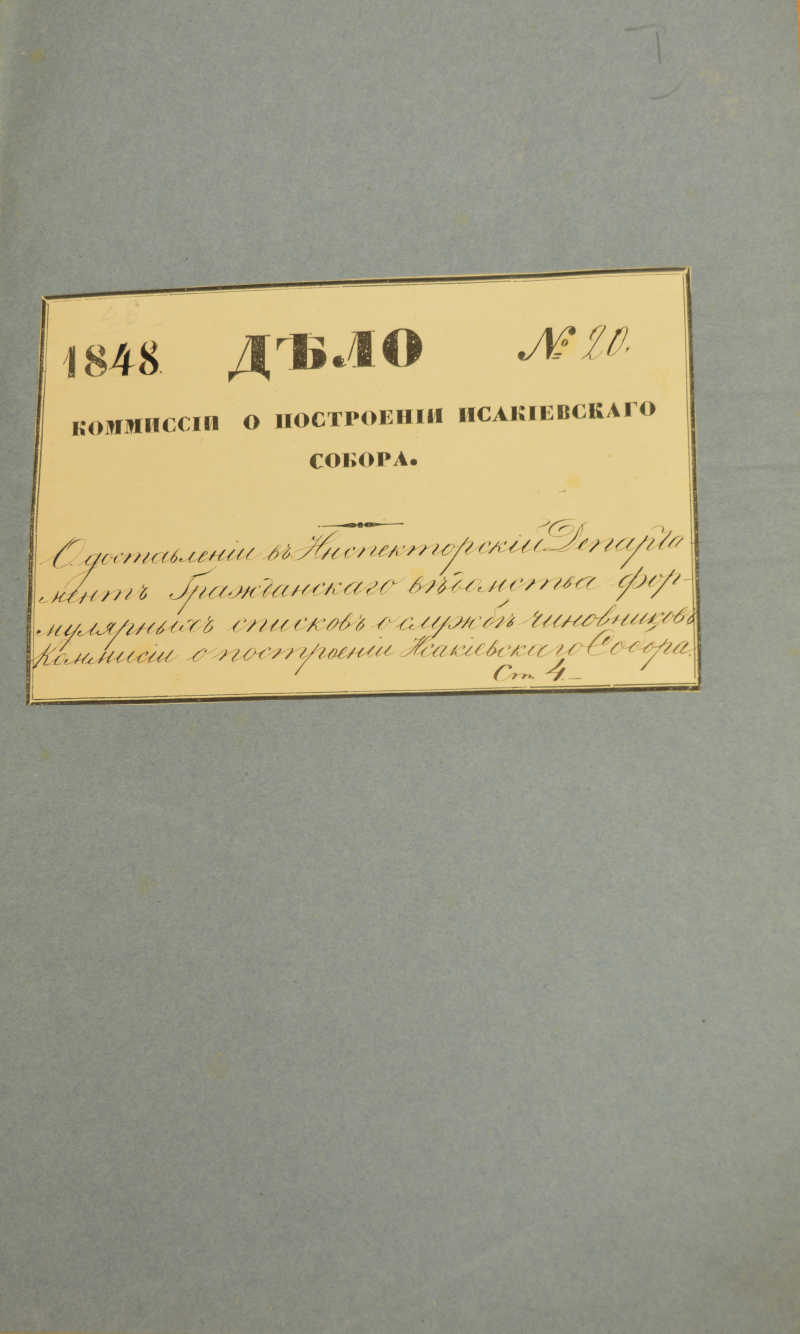 1848 ДѢЛО № 20.
КОММИССІИ О ПОСТРОЕНІИ ИСАКІЕВСКАГО
СОБОРА.
О доставленіи въ Инспекторскій Департа
ментъ Гражданскаго вѣдомства фор-
мулярныхъ списковъ о службѣ чиновниковъ
Коммисіи о построеніи Исакіевскаго Собора.
Ст. 4.